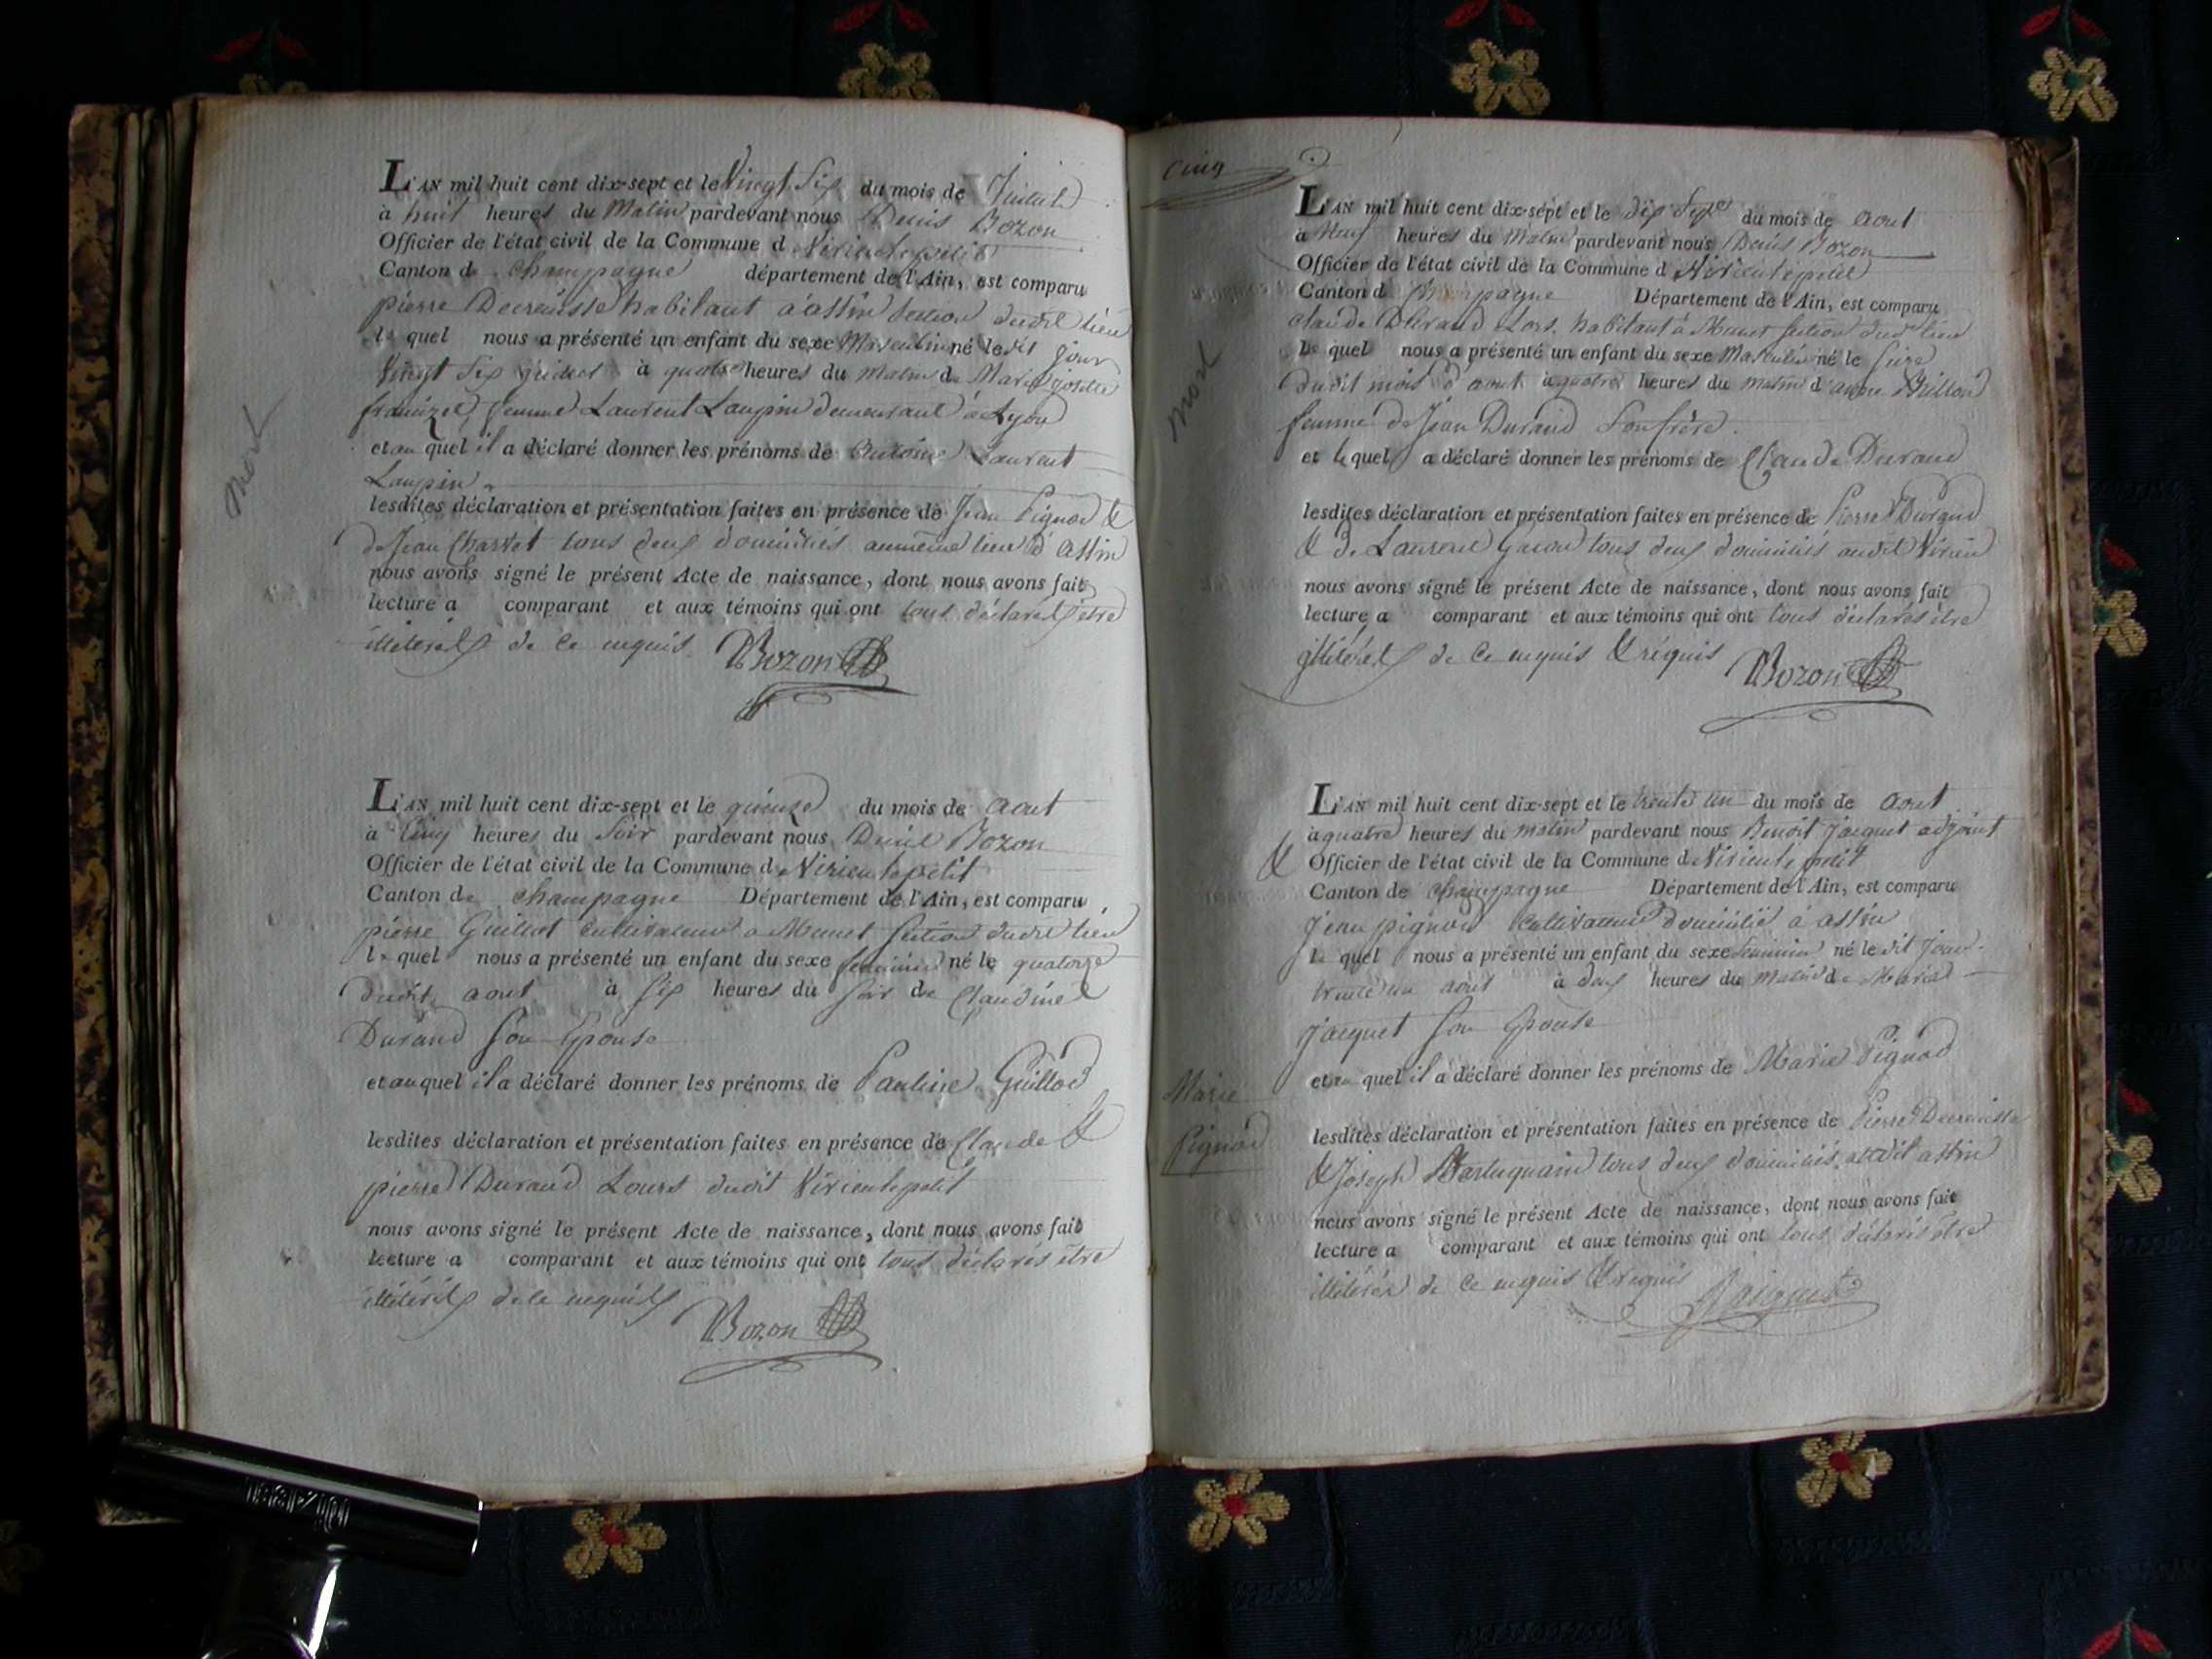 L'AN mil huit cent dix-sept et le Vingt Six du mois de Juillet
à huit heures du Matin pardevant nous Denis Bozon
Officier de l'état civil de la Commune d Virieulepetit
Canton de Champagne département de l'Ain, est comparu
pierre Decreusse habitant à assin Section dudit lieu
le quel nous a présenté un enfant du sexe Masculin né ledit jour
Vingt Six à quatre heures du Matin de Marie
femme Laurent Laupin demeurant à Lyon
et au quel il a déclaré donner les prénoms de antoine Laurent
Laupin
lesdites déclaration et présentation faites en présence de Jean Pignod &
de Jean Charvet tous deux domiciliés aumême lieu d'assin
nous avons signé le présent Acte de naissance, dont nous avons fait
lecture a comparant et aux témoins qui ont tous déclarés être
de ce enquis Bozon
mort
L'AN mil huit cent dix-sept et le quinze du mois de aout
à Cinq heures du Soir pardevant nous Bozon
Officier de l'état civil de la Commune d Virieulepetit
Canton de Champagne Département de l'Ain, est comparu
pierre Guillot cultivateur a Munet Section dudit lieu
le quel nous a présenté un enfant du sexe feminin né le quatorze
dudit aout à Six heures du Soir de Claudine
Durand Son Epouse
et auquel il a déclaré donner les prénoms de Pauline Guillod
lesdites déclaration et présentation faites en présence de Claude &
pierre Durand dudit Virieulepetit
nous avons signé le présent Acte de naissance, dont nous avons fait
lecture a comparant et aux témoins qui ont tous déclarés être
Bozon
Cinq
L'AN mil huit cent dix-sept et le dix Sept du mois de aout
à Neuf heures du Matin pardevant nous Denis Bozon
Officier de l'état civil de la Commune d Virieulepetit
Canton d Champagne Département de l'Ain, est comparu
claude Durand habitant à Munet Section dudit lieu
le quel nous a présenté un enfant du sexe Masculin né le Seize
dudit mois d'aout à quatre heures du matin d'
femme de Jean Durand Son frère
et le quel a déclaré donner les prénoms de Claude Durand
lesdites déclaration et présentation faites en présence de Pierre Durand
& de Laurent tous deux domiciliés audit Virieu
nous avons signé le présent Acte de naissance, dont nous avons fait
lecture a comparant et aux témoins qui ont tous déclarés être
de ce enquis & réquis Bozon
mort
L'AN mil huit cent dix-sept et le trente un du mois de aout
à quatre heures du matin pardevant nous Benoit Jacquet adjoint
& Officier de l'état civil de la Commune d Virieulepetit
Canton de Champagne Département de l'Ain, est comparu
Jean pignod cultivateur domicilié à assin
le quel nous a présenté un enfant du sexe feminin né ledit jour
trente un aout à deux heures du matin de Marie
Jacquet Son Epouse
et au quel il a déclaré donner les prénoms de Marie Pignod
lesdites déclaration et présentation faites en présence de Pierre Decreusse
& Joseph tous deux domiciliés audit assin
nous avons signé le présent Acte de naissance, dont nous avons fait
lecture a comparant et aux témoins qui ont tous déclarés être
de ce enquis & requis
Marie
Pignod